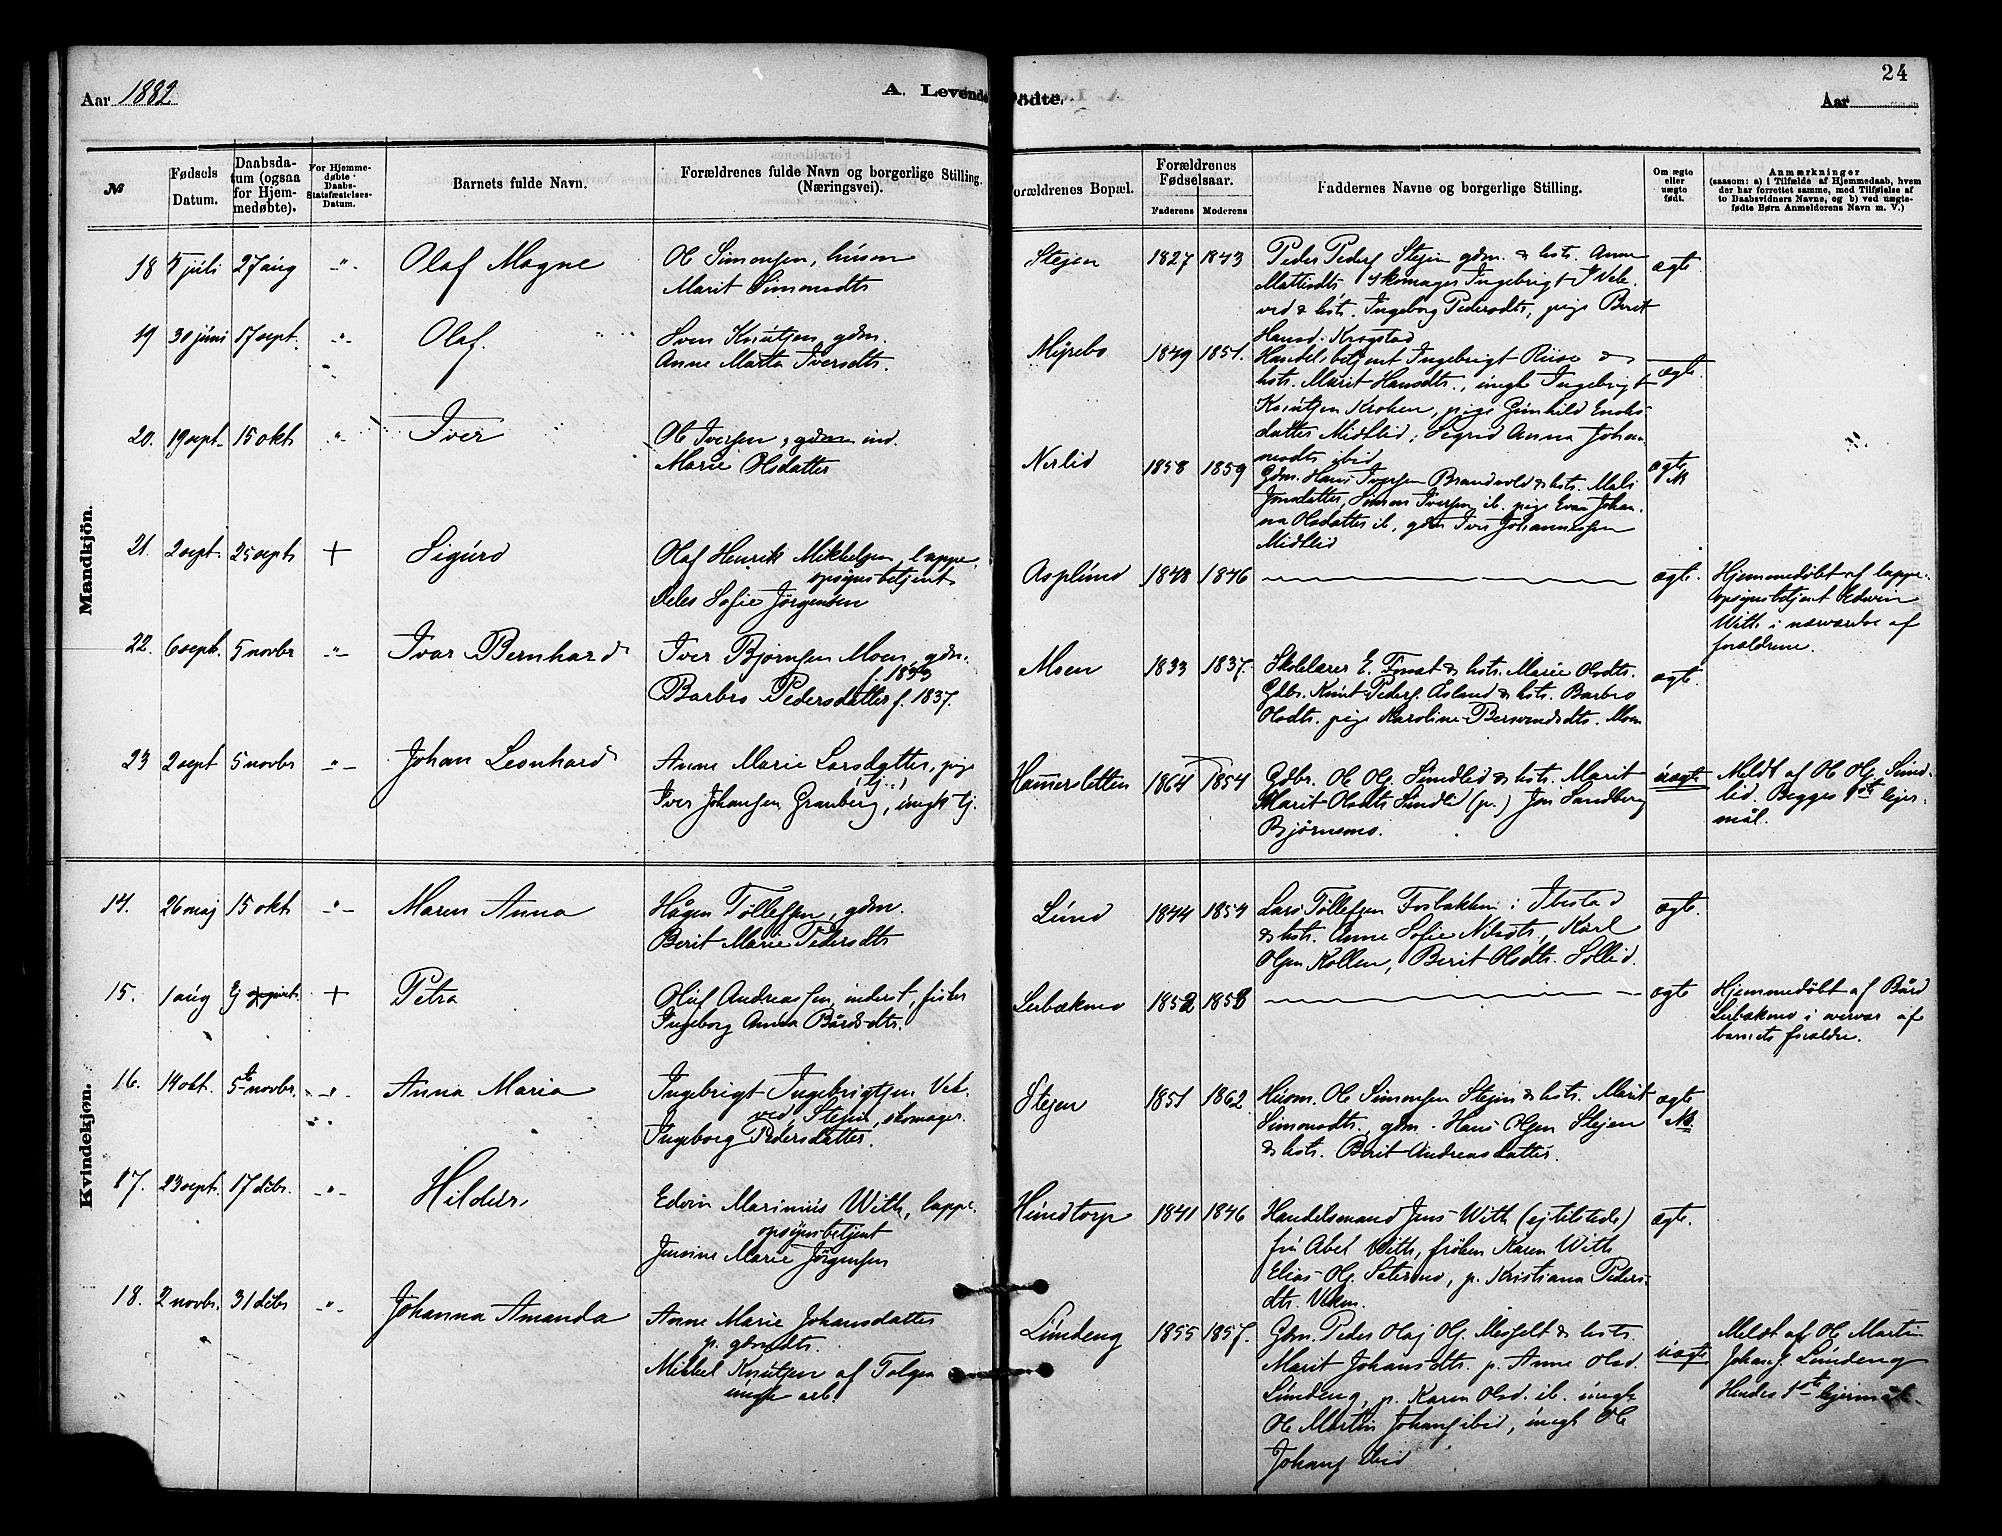 24
Aar 1882
A. Levende Fødte.
Aar
Mandkjön.
Kvindekjøn.
№
Fødsels Datum.
Daabsdatum (ogsaa for Hjemmedøbte).
For Hjemmedøbte Daabs-Stadfæstelses-Datum.
Barnets fulde Navn.
Forældrenes fulde Navn og borgerlige Stilling. (Næringsvei).
Forældrenes Bopæl.
Forældrenes Fødselsaar.
Faderens
Moderens
Faddernes Navne og borgerlige Stilling.
Om ægte eller uægte født.
Anmærkninger
(saasom: a) i Tilfælde af Hjemmedaab, hvem der har forrettet samme, med Tilføielse af to Daabsvidners Navne, og b) ved uægtefødte Børn Anmelderens Navn m. V.)
18 5 juli 27 aug -"- Olaf Magne
Ole Simonsen, husm
Marit Simonsdtr
Stejen 1827 1843
Peder Peders Stejen gdm. & hstr. Anne
Mattisdtr. Skomager Ingebrigt I Vek-
ved & hstr. Ingeborg Pedersdtr, pige Berit
Hansd. Krogstad
ægte
19 30 juni 17 sept. -"- Olaf.
Sven Knutsen, gdm.
Anne Marta Iversdtr.
Myrebo 1849 1851.
Handelsbetjent Ingebrigt Riise &
hstr. Marit Hansdtr., ungk Ingebrigt
Knutsen Kroken, pige Gunhild Enoks-
datter Midtlid, Sigrid Anna Johan-
nesdtr ibid
ægte
20. 19 sept. 15 okt -"- Iver
Ole Iversen, gdm ind.
Marie Olsdatter
Nerlid 1858 1859
Gdm. Hans Iversen Brandvold & hstr. Mali
Jonsdatter, Simon Iversen ib. pige Eva Johan-
na Olsdatter ib, gdm Iver Johannessen
Midtlid
ægte
N
21. 2 sept. 25 sept + Sigurd
Olaf Henrik Mikkelsen, lappe-
opsynsbetjent
Sofie Jørgensen
Asplund 1848 1846
ægte.
Hjemmedøbt af lappe-
opsynsbetjent Edwin
With i nærværelse af
forældrene.
22. 6 sept. 5 novbr -"- Ivar Bernhard
Iver Bjørnsen Moen, gdm.
f. 1833
Barbro Pedersdatter f. 1837.
Moen 1833 1837.
Skolelærer E. Fosat & hstr. Marie Olsdtr.
Gdbr. Knut Peders. Åsland & hstr. Barbro
Olsdtr. pige Karoline Bersvendsdtr. Moen
ægte.
23 2 sept 5 novbr -"- Johan Leonhard
Anne Marie Larsdatter, pige
(tj.)
Iver Johansen Granberg, ungk tj.
Hamersletten 1864 1854
Gdbr. Ole Ols. Sundlid & hstr. Marit
Marit Olsdtr Sundlid (p.) Jon Sandberg
Bjørnemo.
uægte
Meldt af Ole Ols. Sund-
lid. Begges 1ste lejer-
mål.
14. 26 maj 15 okt -"- Maren Anna
Hågen Tollefsen, gdm.
Berit Marie Pedersdtr
Lund 1844 1854
Lars Tollefsen Fosbakken i Ibestad
& hstr. Anne Sofie Nilsdtr., Karl
Olsen Kollen, Berit Olsdtr. Sollid.
ægte.
15. 1 aug Ej + Petra
Oluf Andreassen, inderst, fisker
Ingeborg Anna Bårdsdtr.
Lerbækmo 1852 1858
ægte
Hjemmedøbt af Bård
Lerbækmo i overvær af
barnets forældre.
16. 14 okt. 5te novbr. -"- Anna Maria
Ingebrigt Ingebrigtsen Vek-
ved, Stejen, skomager.
Ingeborg Pedersdatter.
Stejen 1851 1862
Husm. Ole Simonsen Stejen & hstr. Marit
Simonsdtr, gdm. Hans Olsen Stejen
& hstr. Berit Andreasdatter.
ægte
N.
17. 23 sept. 17 debr. -"- Hildur,
Edvin Marinius With, lappe-
opsynsbetjent
Jensine Marie Jørgensen
Hundtorp 1841 1846
Handelsmand Jens With (ej tilstede)
fru Abel With, frøken Karen With
Elias Ols. Sætermo, p. Kristiana Peders-
dtr. Vekm.
ægte.
18. 2 novbr. 31 debr -"- Johanna Amanda
Anne Marie Johansdatter
p. gdmdtr.
Mikkel Knutsen af Tolgen
ungk arb.
Lundeng 1855 1857.
Gdm. Peder Olaj Ols. Mosfelt & hstr.
Marit Johansdtr. p. Anne Olsd.
Lundeng, p. Karen Olsd. ib. ungk
Ole Martin Johans. ibid, ungk Ole
Johans. ibid
uægte
Meldt af Ole Martin
Johans. Lundeng
Hendes 1ste lejermål.